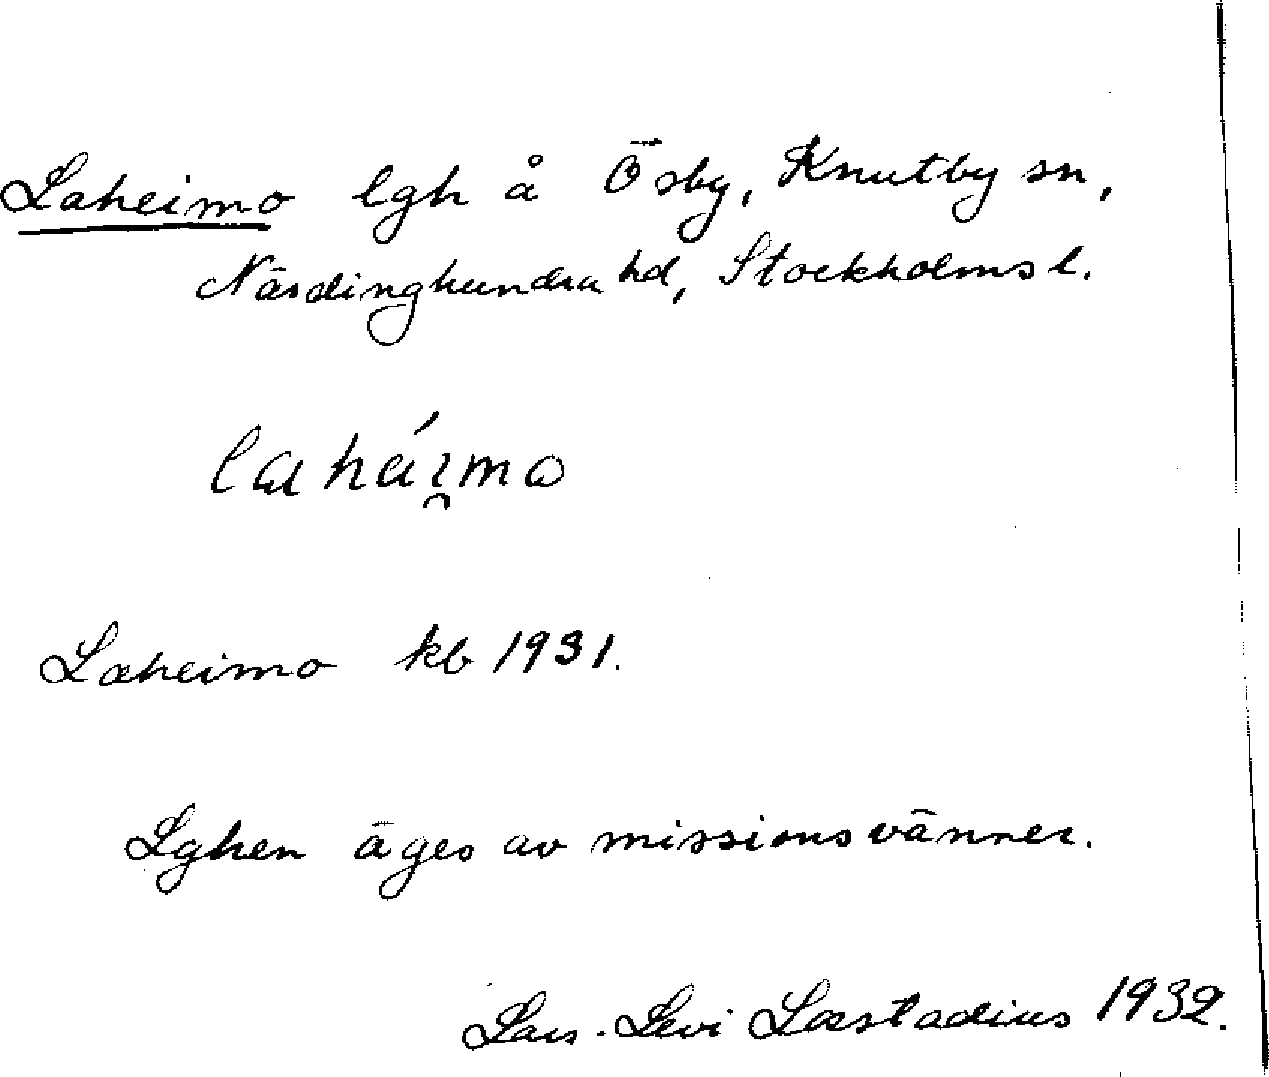 Laheimo lgh å Ösby, Knutby sn,
Närdinghundra hd, Stockholms l.
lahái̯mo
Laheimo kb 1931.
Lghen äges av missionsvänner.
Lars-Levi Læstadius 1932.